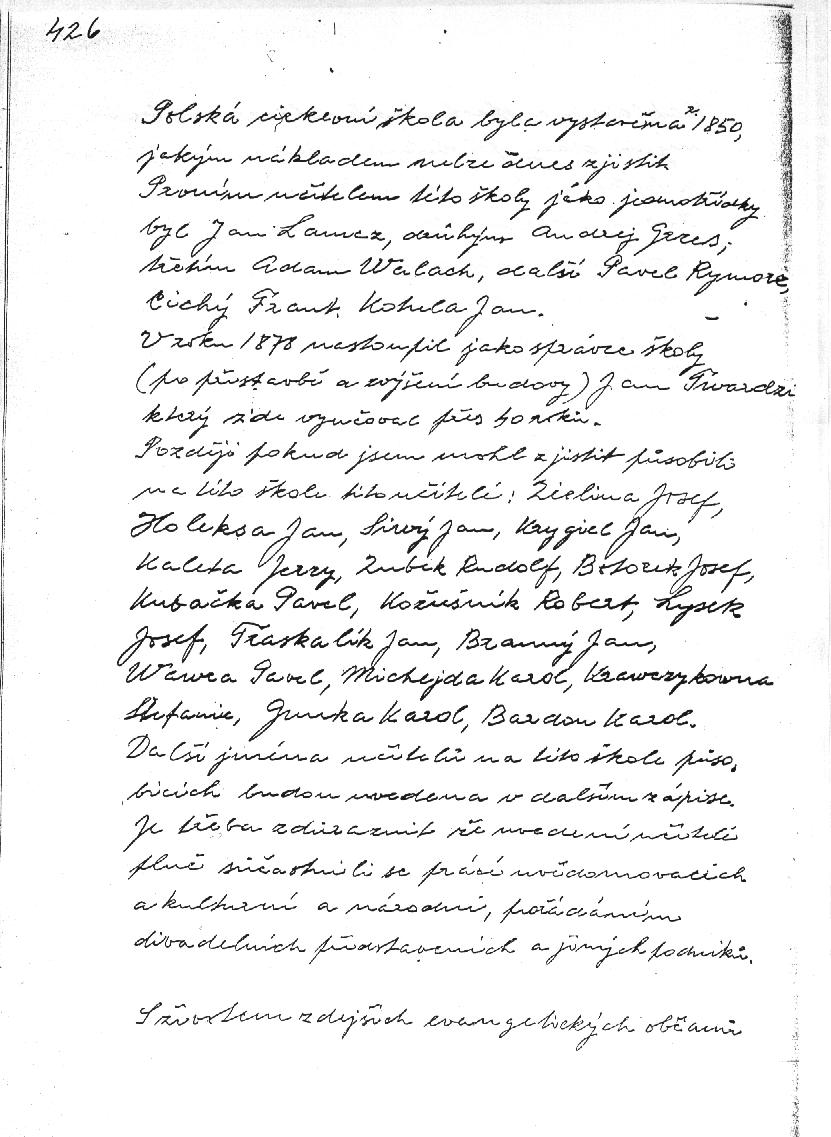 426
Polská církevní škola byla vystavěna r. 1850,
jakým nákladem nelze dnes zjistit
Prvním učitelem této školy jako jednotřídky
byl Jan Lamcz, druhým Andrej Grzes,
třetím Adam Walach, další Pavel Rymorz,
Cichý Frant. Kotula Jan.
V roku 1878 nastoupil jako správce školy
(po přestavbě a zvýšení budovy) Jan Twardzi
který zde vyučoval přes 40 roků.
Později pokud jsem mohl zjistit působili
na této škole tito učitelé: Zielina Josef,
Holeksa Jan, Siwý Jan, Krygiel Jan,
Kaleta Jerzy, Zubek Rudolf, Botorek Josef,
Kubačka Pavel, Kožušník Robert, Lysek
Josef, Třaskalík Jan, Branný Jan,
Wawra Pavel, Michejda Karol, Krawczykowna
Stefanie, Gunka Karol, Bardon Karol.
Další jména učitelů na této škole půso,
bících budou uvedena v dalším zápise.
Je třeba zdůraznit že uvedení učitelé
plně súčastnili se prácí uvědomovacích
a kulturní a národní, pořádáním
divadelních představeních a jiných podniků.
S životem zdejších evangelických občanů